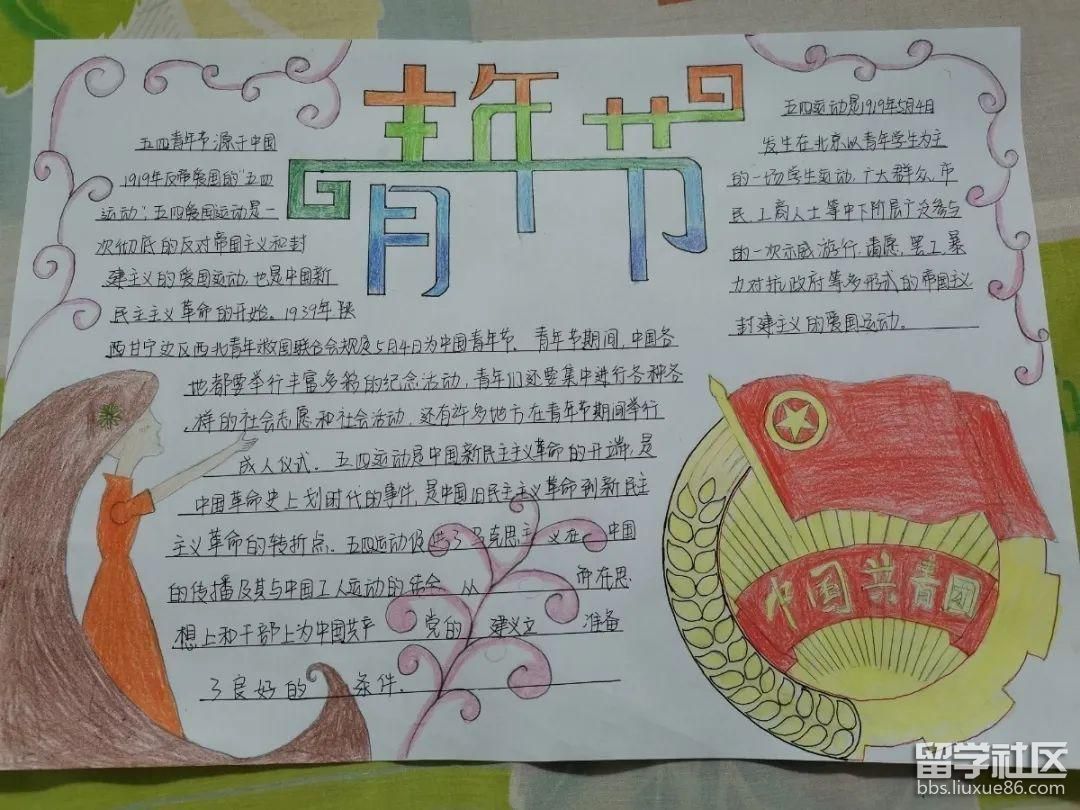 青年节
五四青年节源于中国
1919年反帝爱国的"五四
运动",五四爱国运动是一
次彻底的反对帝国主义和封
建主义的爱国运动,也是中国新
民主主义革命的开始。1939年陕
西甘宁边区西北青年救国联合会规定5月4日为中国青年节。青年节期间,中国各
地都要举行丰富多彩的纪念活动,青年们还要集中进行各种各
样的社会志愿和社会活动,还有许多地方在青年节期间举行
成人仪式。五四运动是中国新民主主义革命的开端,是
中国革命史上划时代的事件,是中国旧民主主义革命到新民主
主义革命的转折点。五四运动促进了马克思主义在中国
的传播及其与中国工人运动的结合,从而在思
想上和干部上为中国共产党的建义立准备
了良好的条件。
五四运动是1919年5月4日
发生在北京以青年学生为主
的一场学生运动,广大群众、市
民、工商人士等中下阶层广泛参与
的一次示威游行、请愿、罢工、暴
力对抗政府等多形式的帝国主义
封建主义的爱国运动。
中国共青团
留学社区
bbs.liuxue86.com